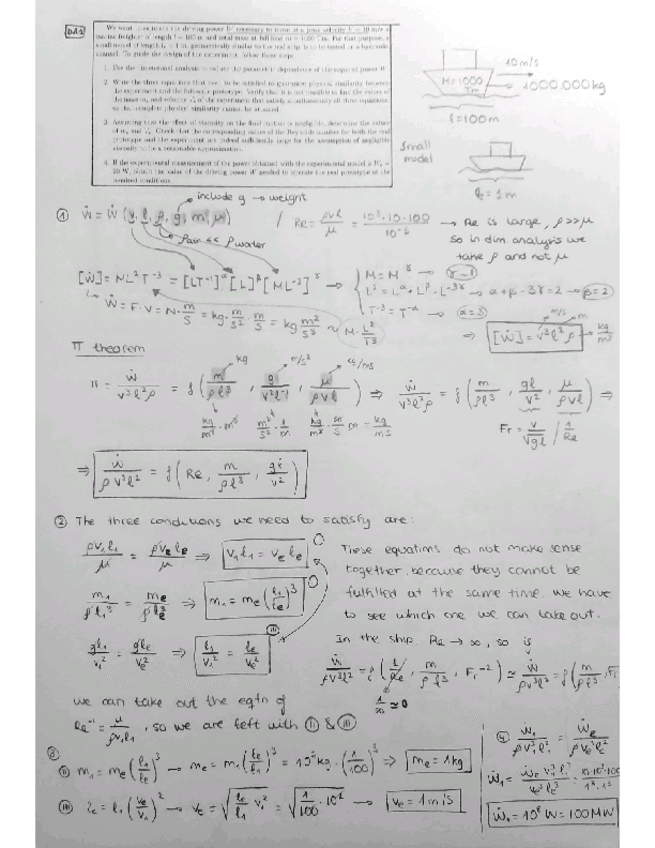 DA1
We want to estimate the driving power Ẇ necessary to move at a given velocity V = 10 m/s a
marine freighter of length l = 100 m and total mass at full load m = 1000 Tm. For that purpose, a
small model of length lₑ = 1 m, geometrically similar to the real ship, is to be tested in a hydraulic
channel. To guide the design of the experiment, follow these steps:
1. Use the dimensional analysis to reduce the parametric dependence of the required power Ẇ
2. Write the three equations that need to be satisfied to guarantee physical similarity between
the experiment and the full-size prototype. Verify that it is not possible to find the values of
the mass mₑ and velocity vₑ of the experiment that satisfy simultaneously all three equations,
so that complete physical similarity cannot be attained.
3. Assuming that the effect of viscosity on the fluid motion is negligible, determine the values
of mₑ and Vₑ. Check that the corresponding values of the Reynolds number for both the real
prototype and the experiment are indeed sufficiently large for the assumption of negligible
viscosity to be a reasonable approximation.
4. If the experimental measurement of the power obtained with the experimental model is Ẇₑ =
10 W, obtain the value of the driving power Ẇ needed to operate the real prototype at the
required conditions.
10 m/s
M=1000 Tm
1000.000kg
l=100m
Small
model
lₑ = 1m
include g → weight
① Ẇ = Ẇ (v, l, ρ, g, m, μ) / Re = ρvl/μ = 10³·10·100/10⁻³ → Re is large, ρ>>μ
so in dim. analysis we
take ρ and not μ
ρair << ρwater
[Ẇ] = ML²T⁻³ = [LT⁻¹]^α [L]^β [ML⁻³]^γ → { M = M^γ → γ=1
L² = L^α + L^β · L^-3γ → α+β-3γ=2 → β=2
T⁻³ = T^-α → α=3
Ẇ = F·V = N·m/s = kg·m/s²·m/s = kg m²/s³ ~ M·L²/T³
⇒ [Ẇ] = v³l²ρ
m/s
m
kg/m³
Π theorem
kg
m/s²
kg/ms
Π = Ẇ/v³l²ρ = f( m/ρl³, g/v²l⁻¹, μ/ρvl ) ⇒ Ẇ/v³l²ρ = f( m/ρl³, gl/v², μ/ρvl ) ⇒
kg/m³·m³
m²/s²·1/m
kg/m³ m/s m = kg/ms
Fr = v/√gl / 1/Re
⇒ Ẇ/ρv³l² = f( Re, m/ρl³, gl/v² )
② The three conditions we need to satisfy are:
ρv₁l₁/μ = ρvₑlₑ/μ ⇒ v₁l₁ = vₑlₑ
These equations do not make sense
together, because they cannot be
m₁/ρl₁³ = mₑ/ρlₑ³ ⇒ m₁ = mₑ(l₁/lₑ)³
fulfilled at the same time. We have
to see which one we can take out.
gl₁/v₁² = glₑ/vₑ² ⇒ l₁/v₁² = lₑ/vₑ²
In the ship Re → ∞, so is
Ẇ/ρv³l² = f( 1/Re, m/ρl³, Fr⁻² ) ≃ Ẇ/ρv³l² = f( m/ρl³, Fr
1/∞ ≃ 0
we can take out the eqtn of
Re⁻¹ = μ/ρv₁l₁, so we are left with Ⓘ & Ⓘ
③
Ⓘ m₁ = mₑ(l₁/lₑ)³ → mₑ = m₁(lₑ/l₁)³ = 10⁶kg·(1/100)³ ⇒ mₑ = 1kg
lₑ = l₁(vₑ/v₁)² → vₑ = √(lₑ/l₁ v₁²) = √(1/100·10²) → vₑ = 1m/s
④ Ẇ₁/ρv₁³l₁² = Ẇₑ/ρvₑ³lₑ²
Ẇ₁ = Ẇₑ v₁³l₁²/vₑ³lₑ² = 10·10³·100/1³·1³
Ẇ₁ = 10⁸ W = 100MW